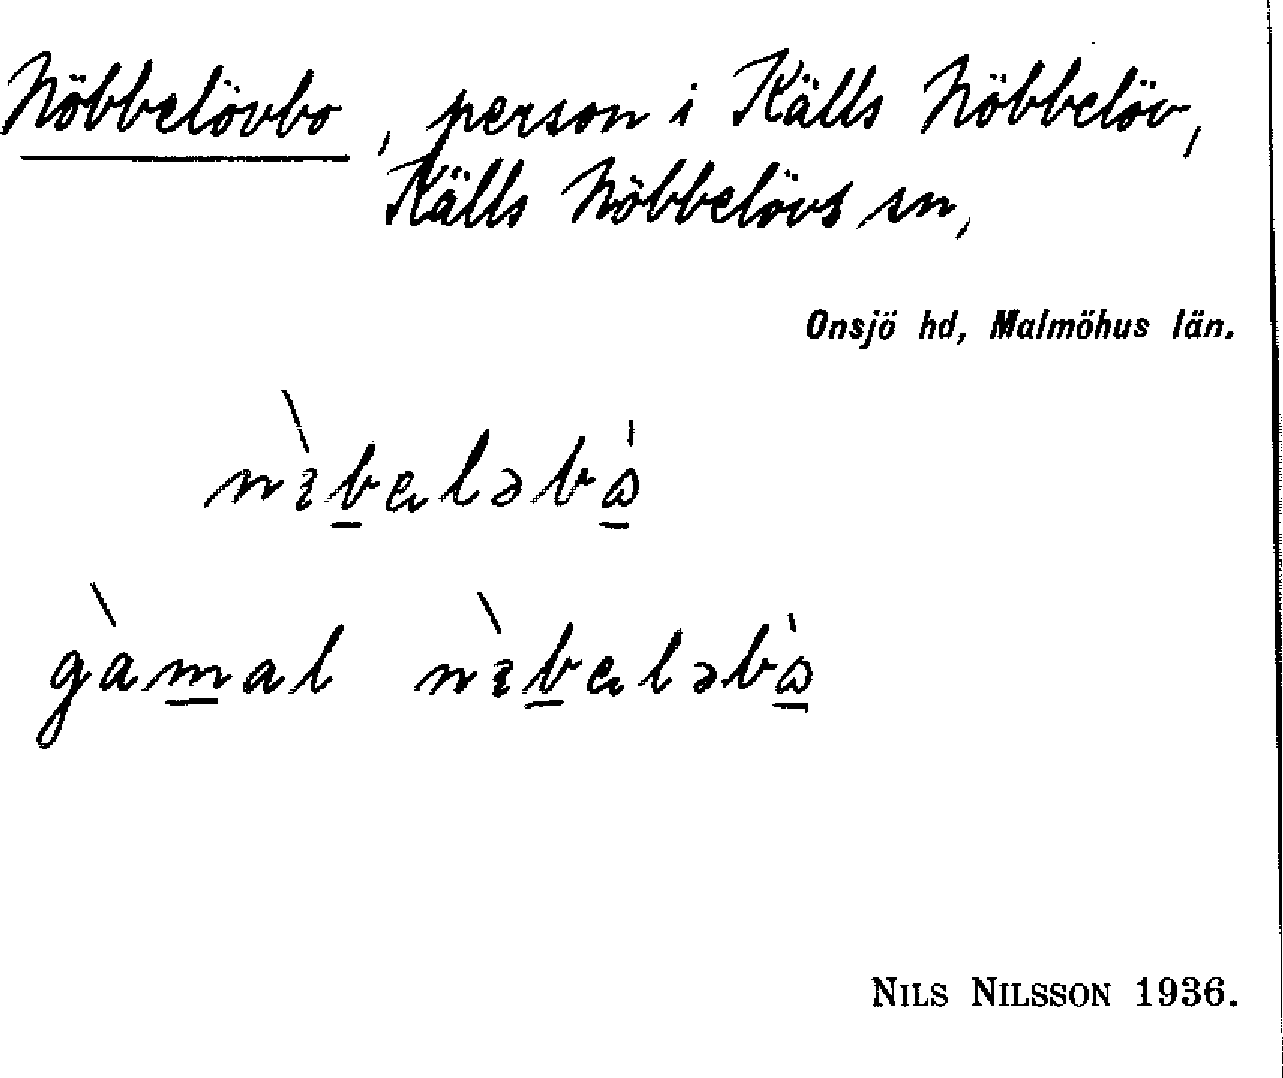 Nöbbelövbo, person i Källs Nöbbelöv,
Källs Nöbbelövs sn,
Onsjö hd, Malmöhus län.
gàmal
NILS NILSSON 1936.